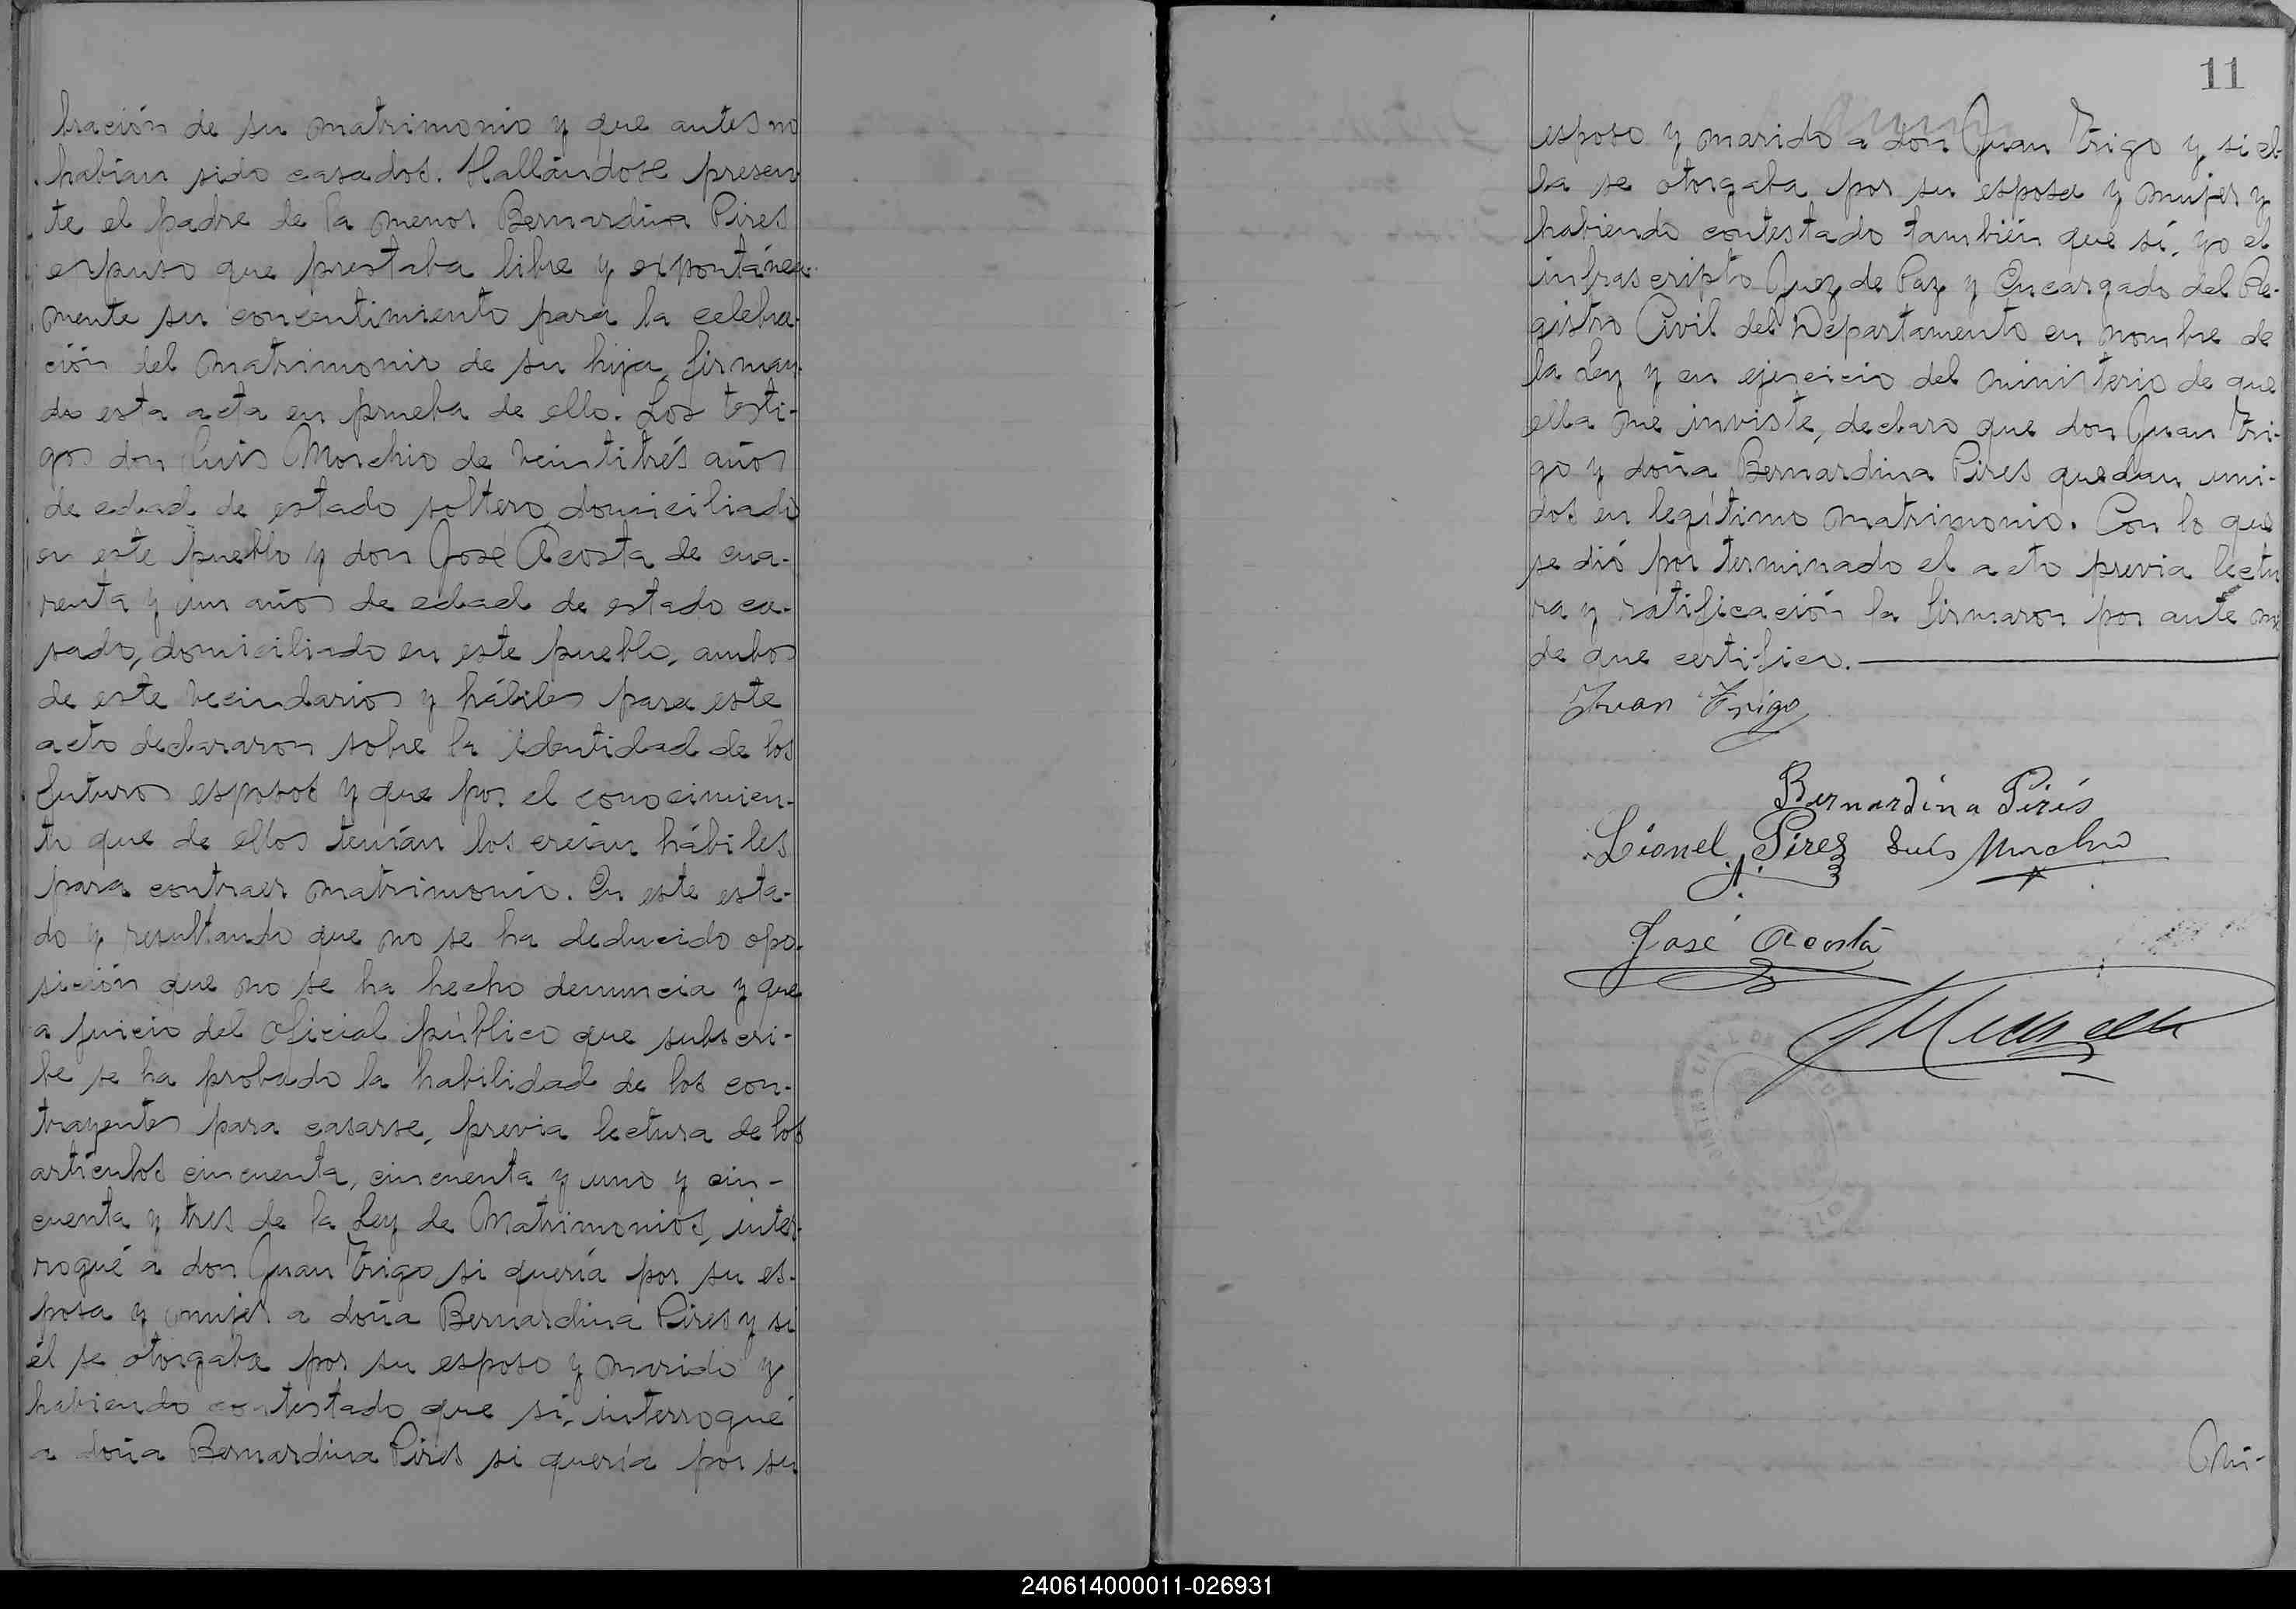 bración de su matrimonio y que antes no
habían sido casados. Hallándose presen-
te el padre de la menor Bernardina Pires
expuso que prestaba libre y expontánea-
mente su concentimiento para la celebra-
ción del matrimonio de su hija, firman-
do esta acta en prueba de ello. Los testi-
gos don Luis Morchio de veintitrés años
de edad de estado soltero, domiciliado
en este pueblo y don José Acosta de cua-
renta y un años de edad de estado ca-
sado, domiciliado en este pueblo, ambos
de este vecindario y hábiles para este
acto declararon sobre la identidad de los
futuros esposos y que por el conocimien-
to que de ellos tenían los creían hábiles
para contraer matrimonio. En este esta-
do y resultando que no se ha deducido opo-
sición que no se ha hecho denuncia y que
a juicio del oficial público que subscri-
be se ha probado la habilidad de los con-
trayentes para casarse, previa lectura de los
artículos cincuenta, cincuenta y uno y cin-
cuenta y tres de la Ley de Matrimonios, inter-
rogué a don Juan Trigo si quería por su es-
posa y mujer a doña Bernardina Pires y si
él se otorgaba por su esposo y marido y
habiendo contestado que sí, interrogué
a doña Bernardina Pires si quería por su
11
esposo y marido a don Juan Trigo y si el-
la se otorgaba por su esposa y mujer y
habiendo contestado también que sí, yo el
infrascripto Juez de Paz y Encargado del Re-
gistro Civil del Departamento en nombre de
la Ley y en ejercicio del ministerio de que
ella me inviste, declaro que don Juan Tri-
go y doña Bernardina Pires quedan uni-
dos en legítimo matrimonio. Con lo que
se dió por terminado el acto previa lectu
ra y ratificación la firmaron por ante mi
de que certifico.
Juan Trigo
Bernardina Pirés
Lionel Pires Luis Morchio
José Acosta
240614000011-026931